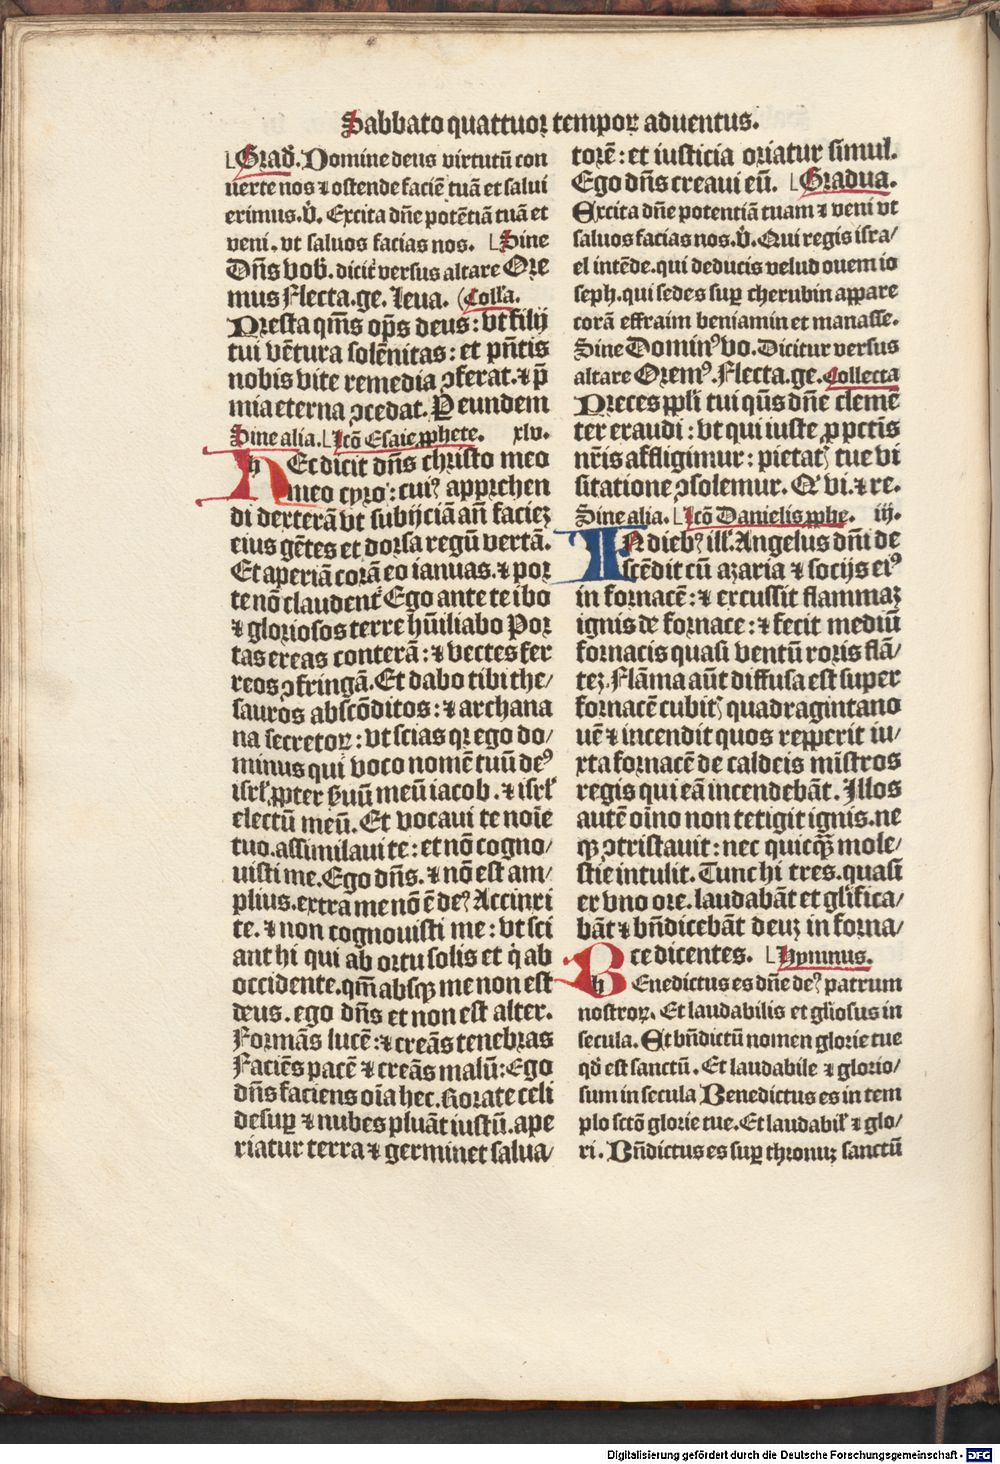 Sabbato quattuoꝛ tempoꝝ aduentus.
Grad̄. Domine deus virtutū con
uerte nos ⁊ ostende faciē tuā et salui
erimus. v̄. Excita dn̄e potētiā tuā et
veni. vt saluos facias nos. Sine
Dn̄s vob̄. dicit̄ versus altare Oꝛe
mus Flecta. ge. Leua. Coll̄a.
Presta qm̄s op̄s deus: vt filij
tui vētura solēnitas: et pn̄tis
nobis vite remedia ↄferat. ⁊ p̄
mia eterna ↄcedat. P eundem
Sine alia. Lcō Esaie ꝓphete. xlv.
h Ec dicit dn̄s christo meo
meo cyro: cuiꝰ appꝛehen
di dexterā vt subijciā an̄ faciez
eius gētes et doꝛsa regū vertā.
Et aperiā coꝛā eo ianuas. ⁊ poꝛ
te nō claudent̄ Ego ante te ibo
⁊ gloꝛiosos terre hūiliabo Poꝛ
tas ereas conterā: ⁊ vectes fer
reos ↄfringā. Et dabo tibi the/
sauros abscōditos: ⁊ archana
na secretoꝝ: vt scias qꝛ ego do/
minus qui voco nomē tuū deꝰ
isrl̄. ꝓpter ẜuū meū iacob. ⁊ isrl̄
electū meū. Et vocaui te noīe
tuo. assimilaui te: et nō cogno/
uisti me. Ego dn̄s. ⁊ nō est am/
plius. extra me nō ē deꝰ Accinxi
te. ⁊ non cognouisti me: vt sci
ant hi qui ab oꝛtu solis et q̇ ab
occidente. qm̄ absqꝫ me non est
deus. ego dn̄s et non est alter.
Foꝛmās lucē: ⁊ creās tenebras
Faciēs pacē ⁊ creās malū: Ego
dn̄s faciens oīa hec. Roꝛate celi
desuꝑ ⁊ nubes pluāt iustū. ape
riatur terra ⁊ germinet salua/
toꝛē: et iusticia oꝛiatur simul.
Ego dn̄s creaui eū. Gradua.
Excita dn̄e potentiā tuam ⁊ veni vt
saluos facias nos. v̄. Qui regis isra/
el intēde. qui deducis velud ouem io
seph. qui sedes suꝑ cherubin appare
coꝛā effraim beniamin et manasse.
Sine Dominꝰ vo. Dicitur versus
altare Oꝛemꝰ. Flecta. ge. Collecta
Preces ppl̄i tui qūs dn̄e clemē
ter eraudi: vt qui iuste ꝓ pctīs
nr̄is affligimur: pietatꝭ tue vi
sitatione ↄsolemur. Q vi. ⁊ re.
Sine alia. Lcō Danielis ꝓphe. iij.
IN diebꝰ ill̄. Angelus dn̄i de
scēdit cū azaria ⁊ socijs eiꝰ
in foꝛnacē: ⁊ excussit flammaꝫ
ignis de foꝛnace: ⁊ fecit mediū
foꝛnacis quasi ventū roꝛis flā/
teꝫ. Flāma aūt diffusa est super
foꝛnacē cubitꝭ quadraginta no
uē ⁊ incendit quos repperit iu/
xta foꝛnacē de caldeis mīstros
regis qui eā incendebāt. Illos
autē oīno non tetigit ignis. ne
qꝫ ↄtristauit: nec quicꝗ̄ mole/
stie intulit. Tunc hi tres. quasi
er vno oꝛe. laudabāt et gl̄ifica/
bāt ⁊ bn̄dicebāt deuꝫ in foꝛna/
ce dicentes. Hymnus.
B Enedictus es dn̄e deꝰ patrum
nostroꝝ. Et laudabilis et gl̄iosus in
secula. Et bn̄dictū nomen gloꝛie tue
qd̄ est sanctū. Et laudabile ⁊ gloꝛio/
sum in secula Benedictus es in tem
plo sctō gloꝛie tue. Et laudabil̄ ⁊ glo/
ri. Bn̄dictus es suꝑ thronuꝫ sanctū
Digitalisierung gefördert durch die Deutsche Forschungsgemeinschaft - DFG